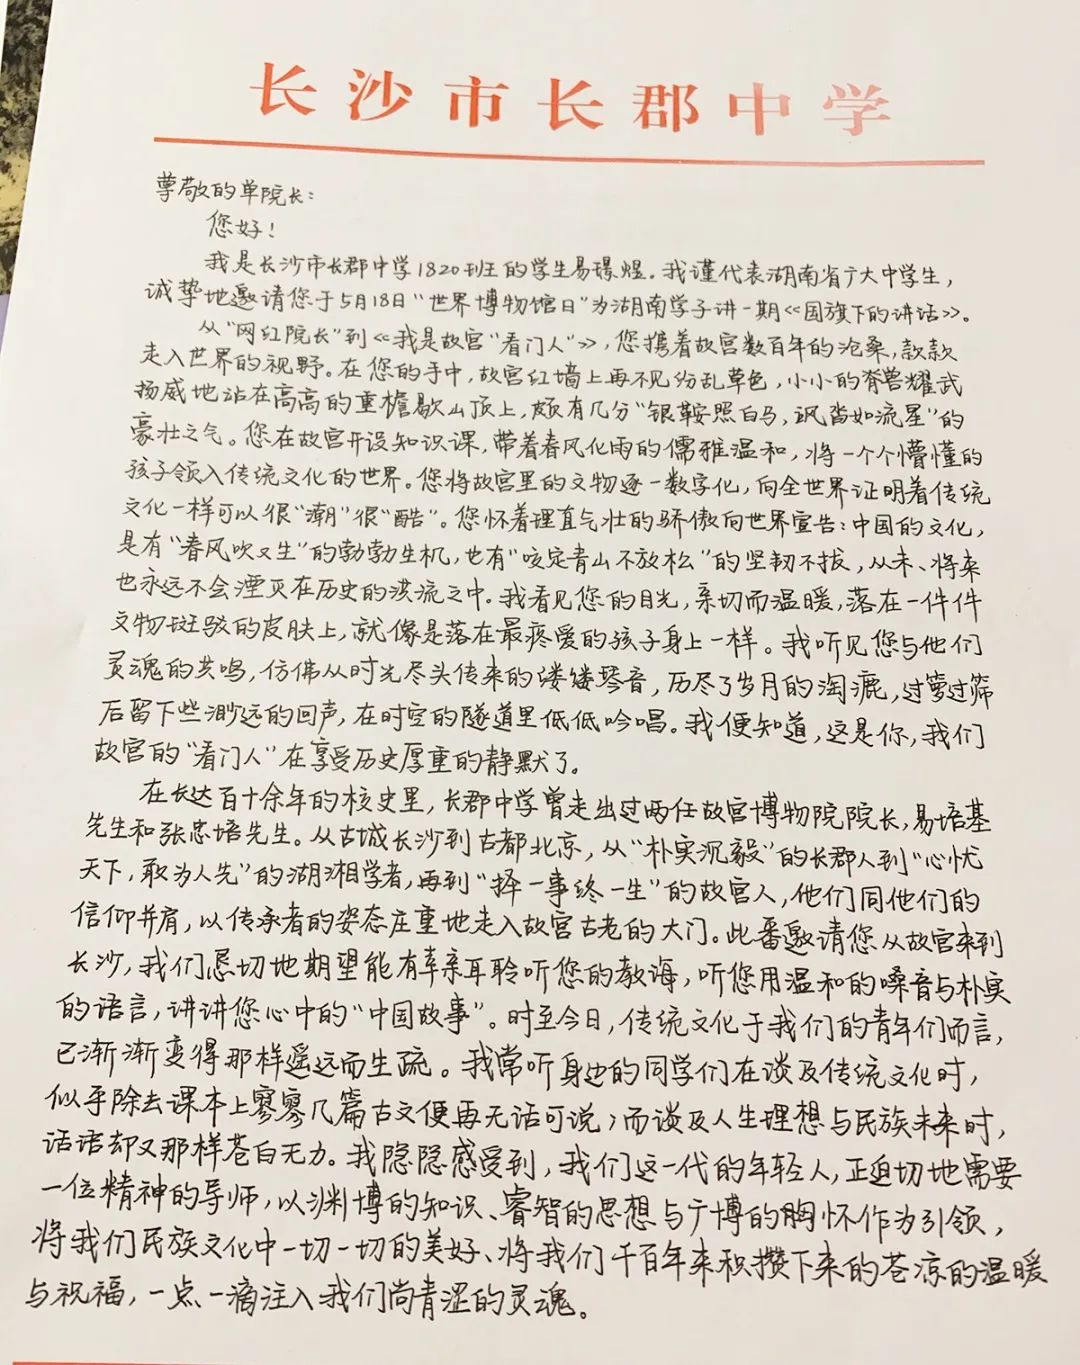 长沙市长郡中学
尊敬的单院长：
您好！
我是长沙市长郡中学1820班的学生易璟煜。我谨代表湖南省广大中学生，
诚挚地邀请您于5月18日“世界博物馆日”为湖南学子讲一期《国旗下的讲话》。
从“网红院长”到《我是故宫“看门人”》，您携着故宫数百年的沧桑，款款
走入世界的视野。在您的手中，故宫红墙上再不见纷乱草色，小小的脊兽耀武
扬威地站在高高的重檐歇山顶上，颇有几分“银鞍照白马，飒沓如流星”的
豪壮之气。您在故宫开设知识课，带着春风化雨的儒雅温和，将一个个懵懂的
孩子领入传统文化的世界。您将故宫里的文物逐一数字化，向全世界证明着传统
文化一样可以很“潮”很“酷”。您怀着理直气壮的骄傲向世界宣告：中国的文化，
是有“春风吹又生”的勃勃生机，也有“咬定青山不放松”的坚韧不拔，从未、将来
也永远不会湮灭在历史的洪流之中。我看见您的目光，亲切而温暖，落在一件件
文物斑驳的皮肤上，就像是落在最疼爱的孩子身上一样。我听见您与他们
灵魂的共鸣，仿佛从时光尽头传来的缕缕琴音，历尽了岁月的淘漉，过箩过筛
后留下些渺远的回声，在时空的隧道里低低吟唱。我便知道，这是你，我们
故宫的“看门人”在享受历史厚重的静默了。
在长达百十余年的校史里，长郡中学曾走出过两任故宫博物院院长，易培基
先生和张忠培先生。从古城长沙到古都北京，从“朴实沉毅”的长郡人到“心忧
天下，敢为人先”的湖湘学者，再到“择一事终一生”的故宫人，他们同他们的
信仰并肩，以传承者的姿态庄重地走入故宫古老的大门。此番邀请您从故宫来到
长沙，我们恳切地期望能有幸亲耳聆听您的教诲，听您用温和的嗓音与朴实
的语言，讲讲您心中的“中国故事”。时至今日，传统文化于我们的青年们而言，
已渐渐变得那样遥远而生疏。我常听身边的同学们在谈及传统文化时，
似乎除去课本上寥寥几篇古文便再无话可说；而谈及人生理想与民族未来时，
话语却又那样苍白无力。我隐隐感受到，我们这一代的年轻人，正迫切地需要
一位精神的导师，以渊博的知识、睿智的思想与广博的胸怀作为引领，
将我们民族文化中一切一切的美好、将我们千百年来积攒下来的苍凉的温暖
与祝福，一点一滴注入我们尚青涩的灵魂。